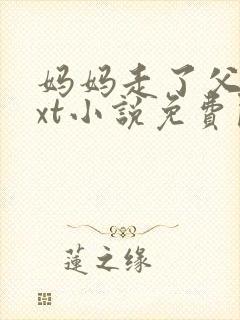 妈妈走了父
xt小說免費
蓮之缘